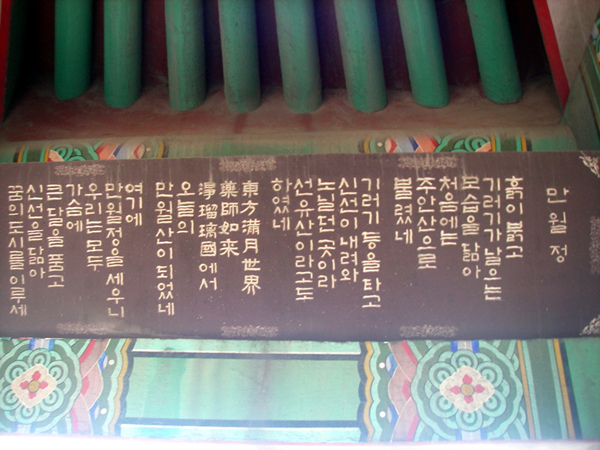 만월정
흙이 붉고
기러기가 날으는
모습을 닮아
처음에는
주안산으로
불렸네
기러기 등을 타고
신선이 내려와
노닐던 곳이라
선유산이라고도
하였네
東方滿月世界
藥師如来
淨瑠璃國에서
오늘의
만월산이 되었네
여기에
만월정을 세우니
우리는 모두
가슴에
큰 달을 품고
신선을 닮아
꿈의 도시를 이루세